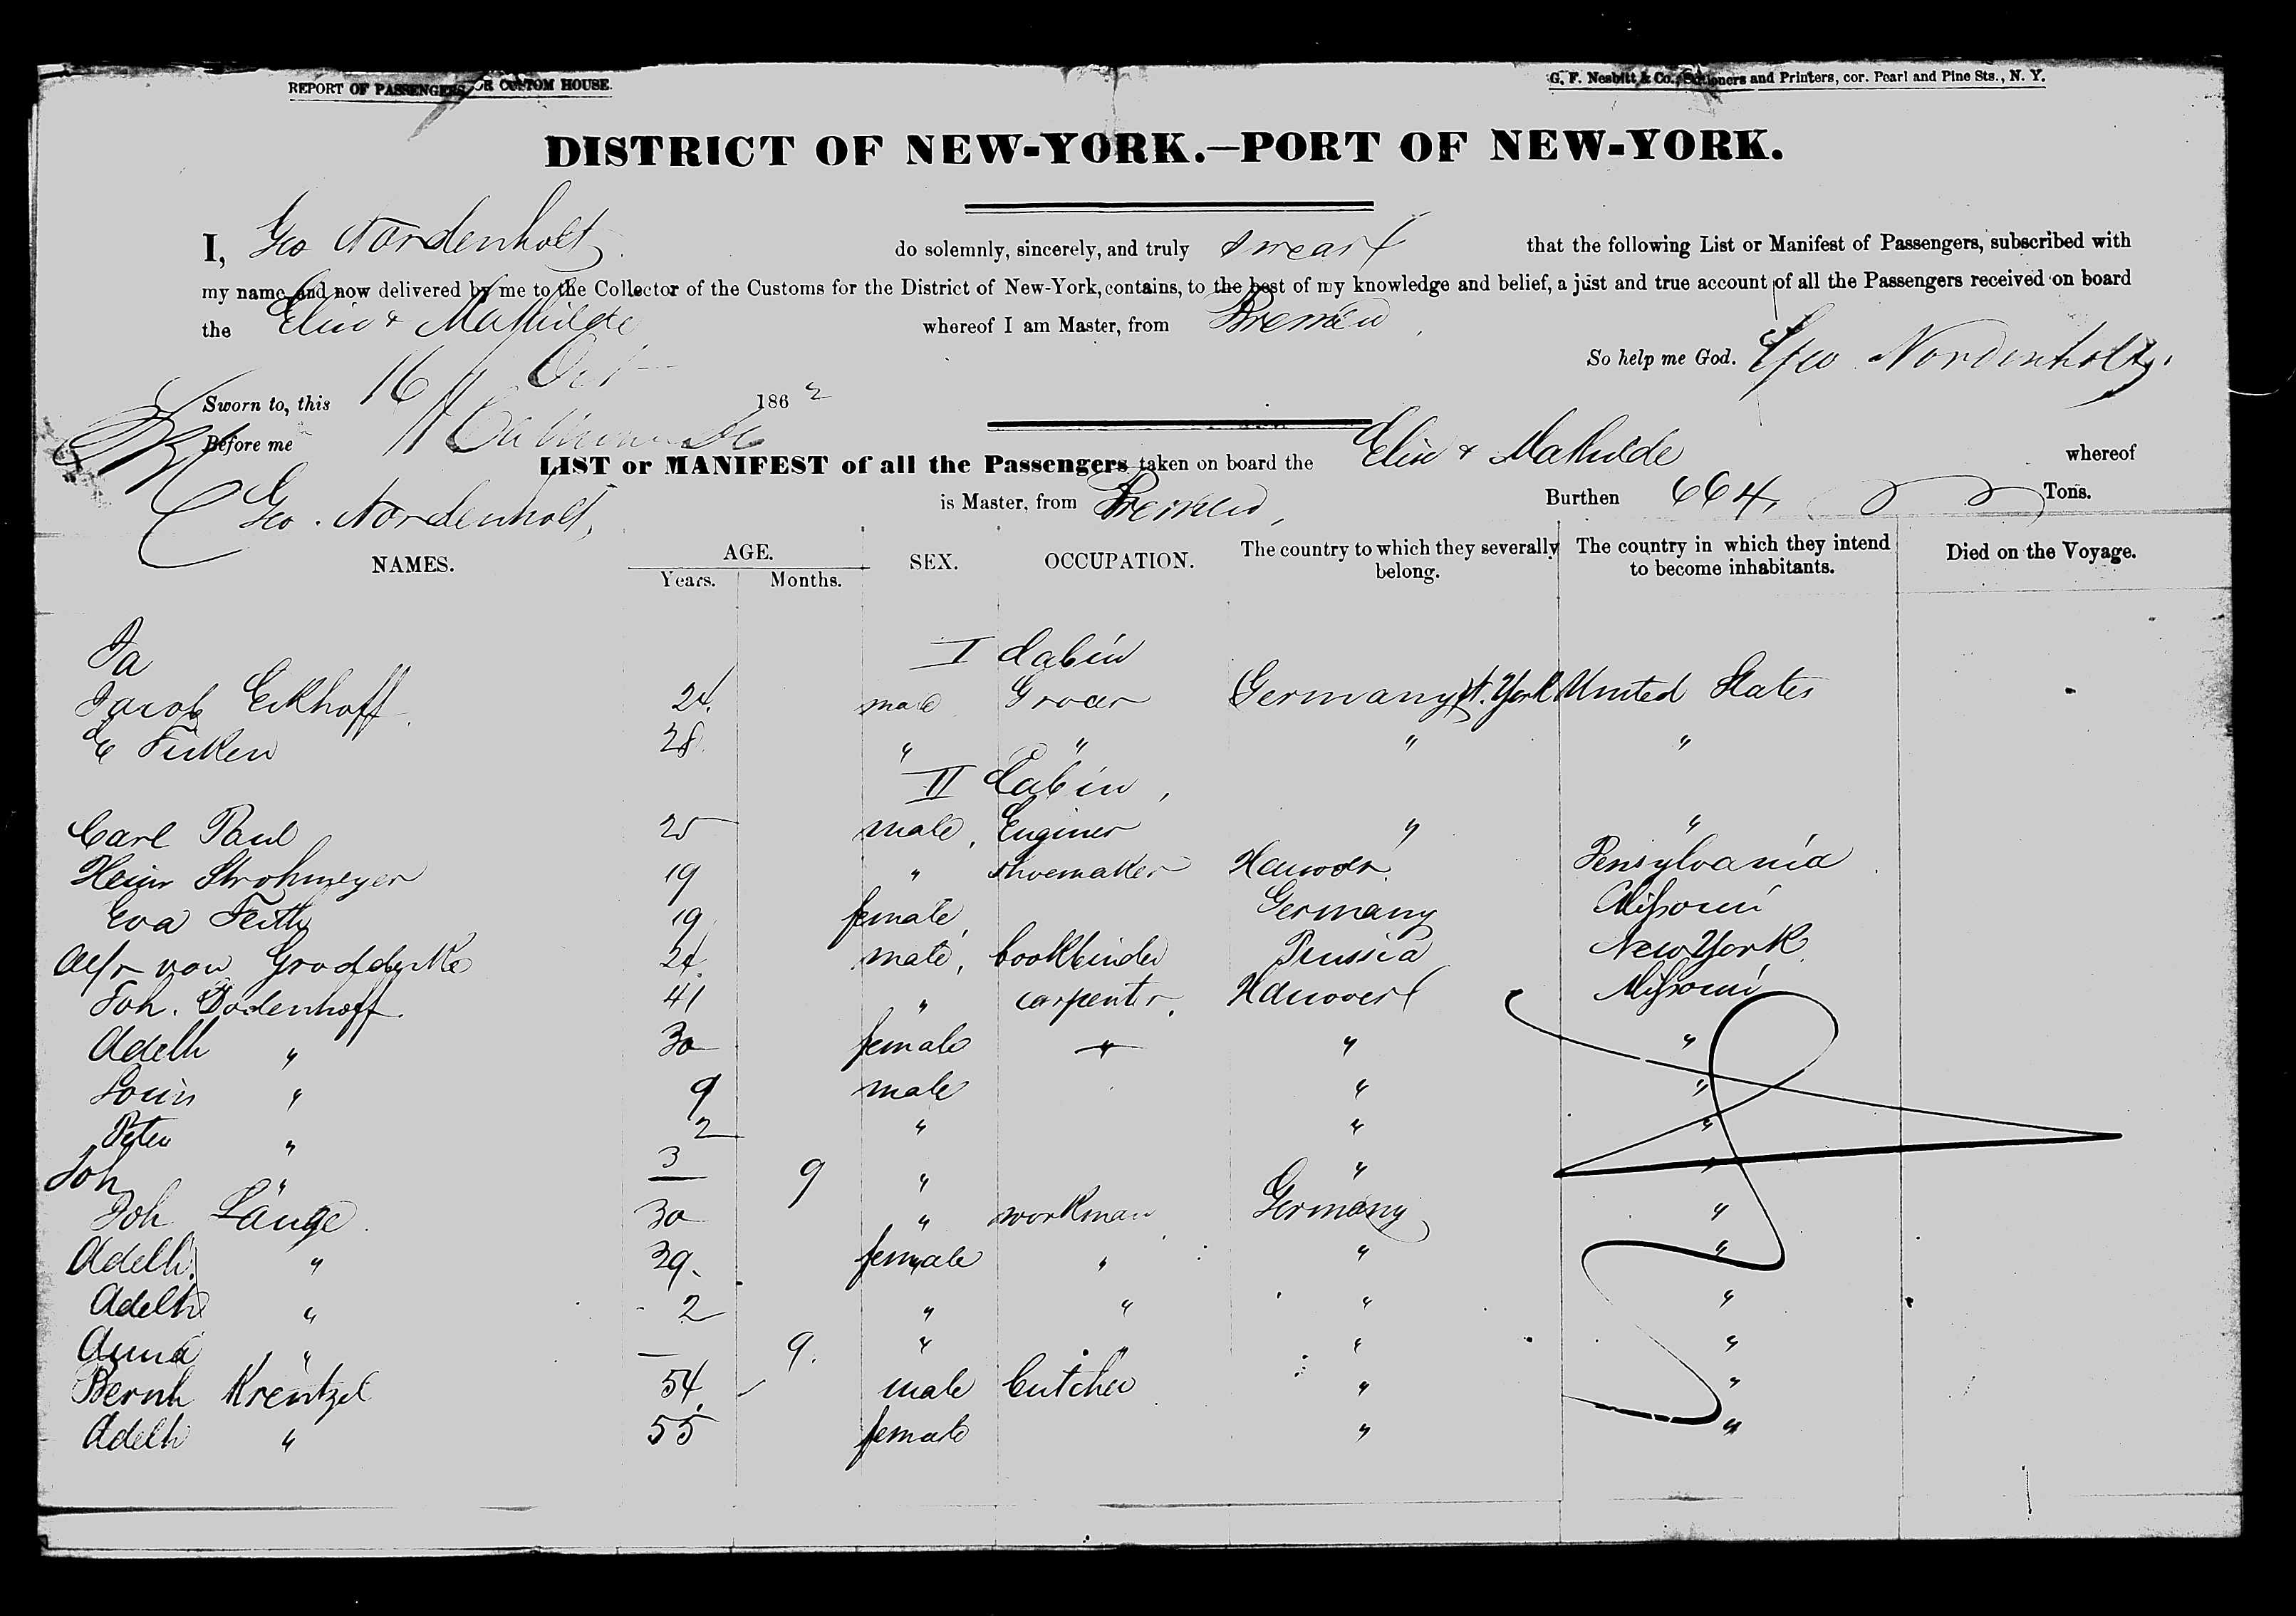 REPORT OF PASSENGERS FOR CUSTOM HOUSE.
G. F. Nesbitt & Co., Stationers and Printers, cor. Pearl and Pine Sts., N. Y.
DISTRICT OF NEW-YORK.—PORT OF NEW-YORK.
I, Geo Nordenholt do solemnly, sincerely, and truly swear that the following List or Manifest of Passengers, subscribed with
my name and now delivered by me to the Collector of the Customs for the District of New-York, contains, to the best of my knowledge and belief, a just and true account of all the Passengers received on board
the Elise & Mathilde whereof I am Master, from Bremen
So help me God. Geo Nordenholt.
Sworn to, this 16 Oct 1862
Before me
LIST or MANIFEST of all the Passengers taken on board the Elise & Mathilde whereof
Geo. Nordenholt, is Master, from Bremen, Burthen 664, Tons.
NAMES. AGE. Years. Months. SEX. OCCUPATION. The country to which they severally belong. The country in which they intend to become inhabitants. Died on the Voyage.
Ja I Cabin
Jacob Eckhoff 24. male Grocer Germany N. York United States
E Ficken 28 " " " "
II Cabin,
Carl Paul 25 male, Enginer " "
Heinr Strohmeyer 19 " shoemaker Hanover. Pensylvania
Eva Feith 19 female, Germany Missouri
von 24 male, bookbinder Prussia New York
Joh. Bodenhoff. 41 " carpentr. Hanover Missouri
Adelh " 30 female " " "
Louis " 9 male " "
Peter " 2 " " "
Joh " 3 9 " " "
Joh Lange 30 " workman Germany "
Adelh. " 39. female " " "
Adelh " 2 " " " "
Anna " — 9. " " " "
Bernh Krentzel 54. male butcher " "
Adelh " 55 female " "